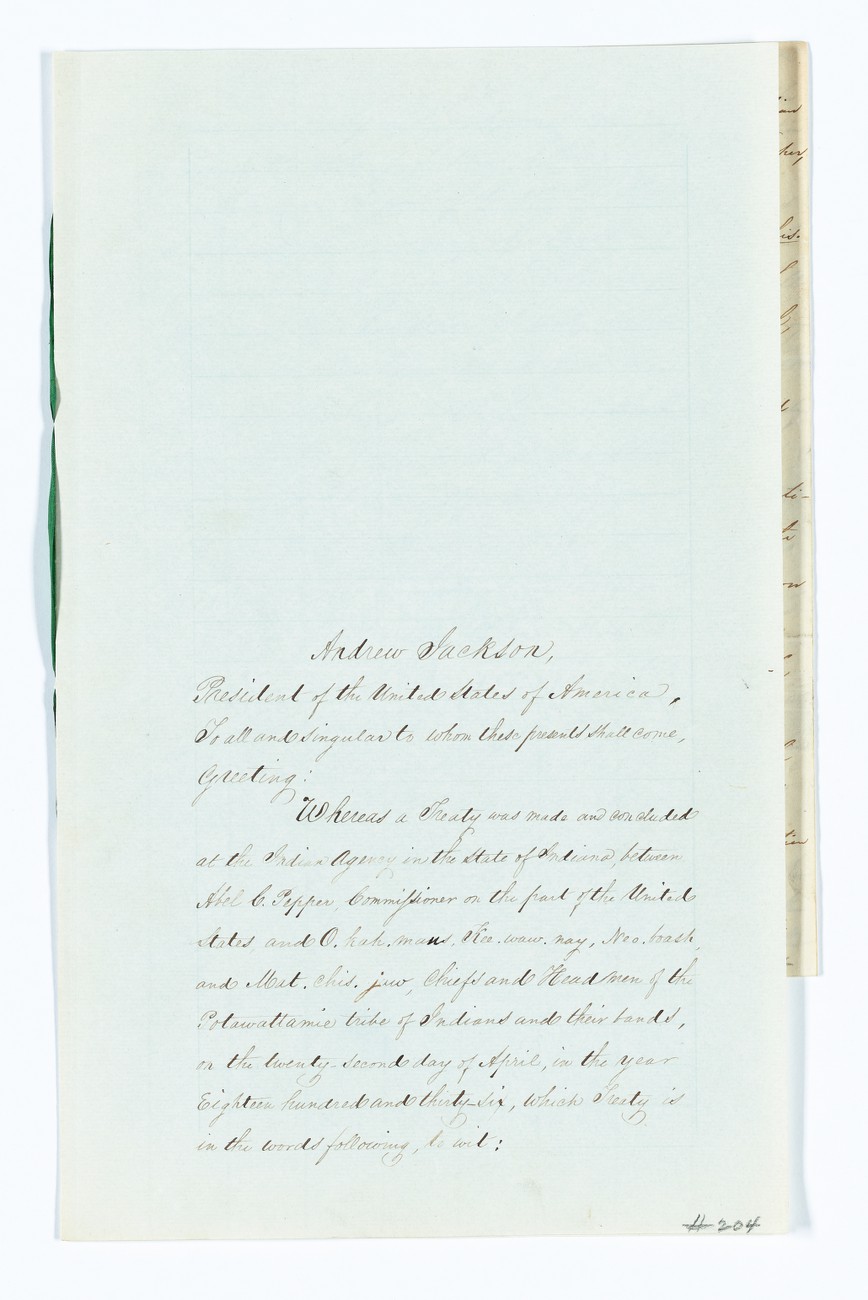 Andrew Jackson,
President of the United States of America,
To all and singular to whom these presents shall come,
Greeting:
Whereas a Treaty was made and concluded
at the Indian Agency in the State of Indiana, between
Abel C. Pepper, Commissioner on the part of the United
States, and O. kah. maus, Kee. waw. nay, Nee. boash,
and Mat. chis. jaw, Chiefs and Head men of the
Potawattamie tribe of Indians and their bands,
on the twenty-second day of April, in the year
Eighteen hundred and thirty-six, which Treaty is
in the words following, to wit:
# 204